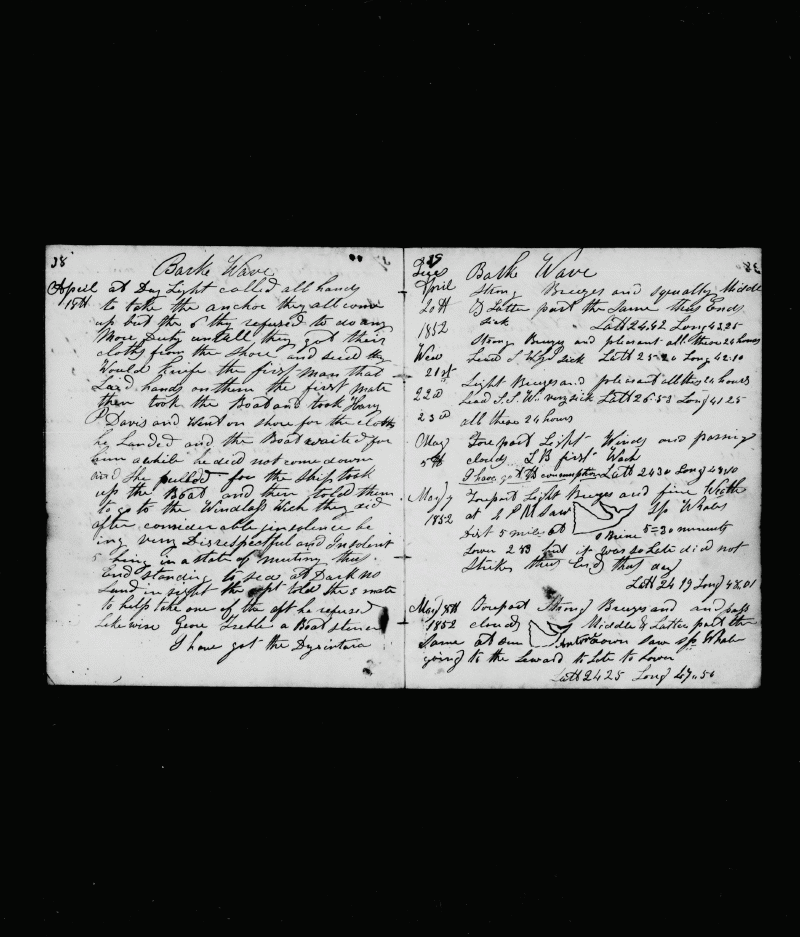 38
Barke Wave
April at Day Light called all hands
18th to take the anchor they all come
up but the 6 thy refused to do any
More Duty untill they got their
cloths from the shore and seid they
Would knife the first man that
Laid hands on them the first mate
then took the Boat and took Harry
P Davis and Went on shore for the cloths
he Landed and the Boat waited for
him a while he did not come down
and she pulled for the ship took
up the Boat and then told them
to go to the Windlass Wich they did
after considerable insolence be
ing very Disrespectful and Insolent
being in a state of mutiny thus
End standing to sea at Dark no
Land in sight the cpt told the 3 mate
to help take one of the aft he refused
Likewise Geore Treble a Boat sterer
I have got the Dysintara
39
Barke Wave
April Strong Breezes and squally Middle
20th & Latter part the Same thus Ends
1852 sick Latt 24.42 Long 43.25
Strong Breezes and plesant all these 24 hours
Wen Lead S. W sick Latt 25-20 Long 42.10
21st
Light Breezes and plesant all this 24 hours
22d Lead S.S.W. very sick Latt 26.53 Long 41 25
23d all these 24 hours
May Fore part Light Winds and passing
5th clouds L B first Wach
I have got the consumption Latt 24 30 Long 48.10
May 7 Forepart Light Breezes and fine Weather
1852 at 4 P M Saw Sp Whales
dist 5 miles at 5=30 minuets
Lower 2 B but it was so Late did not
Strike thus End this day
Latt 24 19 Long 48.01
May 8th Forepart Strong Breezes and and pass
1852 clouds Middle & Latter part the
Same at sun down saw sp Whale
going to the Leward to Late to Lower
Latt 24 25 Long 47.50